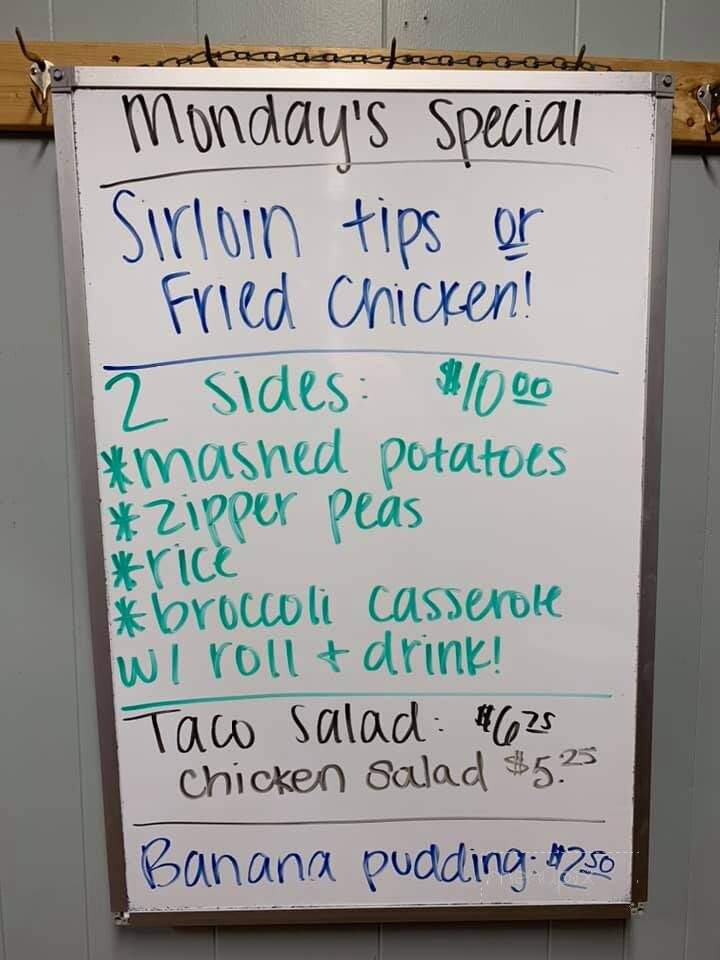 Monday's Special
Sirloin tips or
Fried Chicken!
2 sides: $10.00
*mashed potatoes
*zipper peas
*rice
*broccoli casserole
w/ roll + drink!
Taco Salad: $6.25
chicken salad $5.25
Banana pudding: $2.50